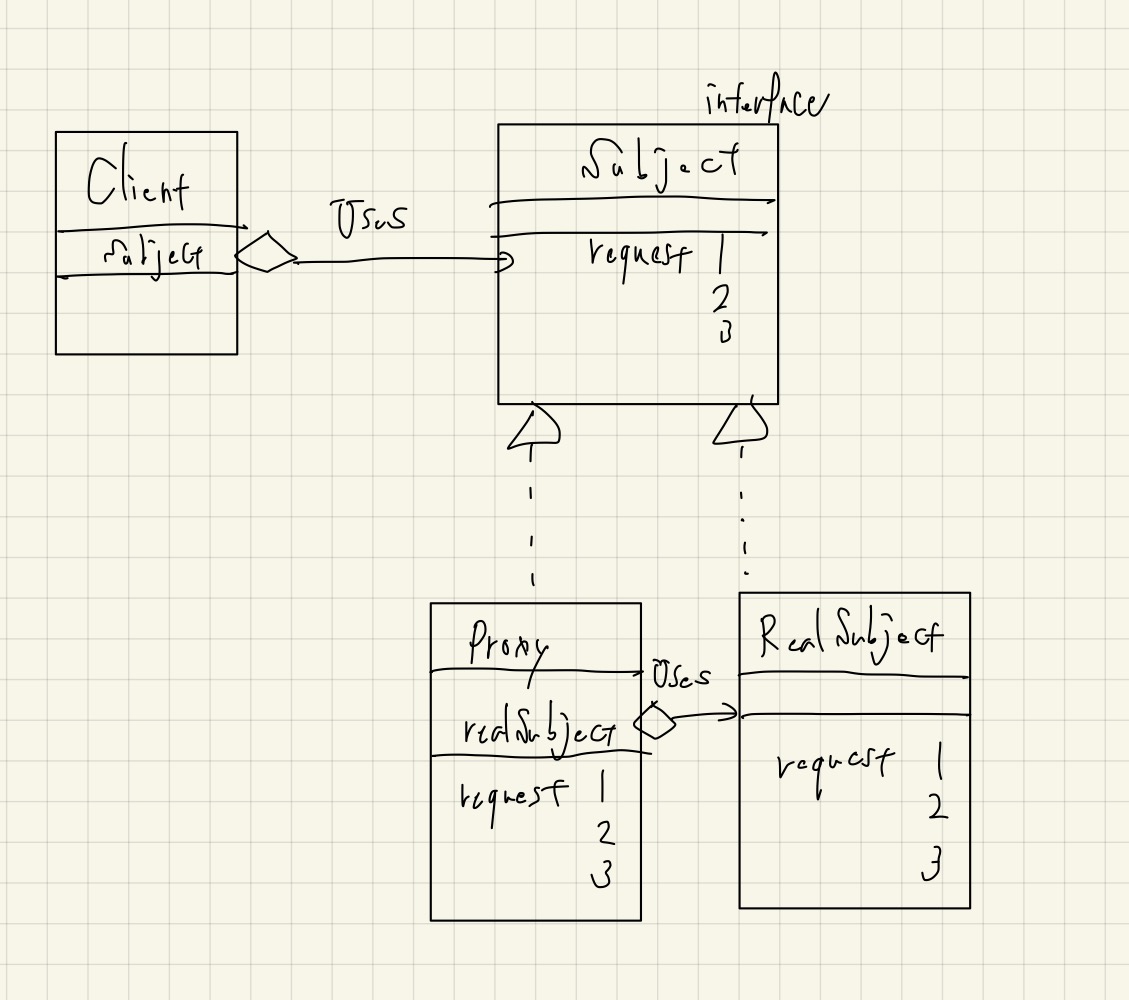 interface
Client
Subject
Uses
Subject
request 1
2
3
Proxy
realSubject
request 1
2
3
Uses
RealSubject
request 1
2
3